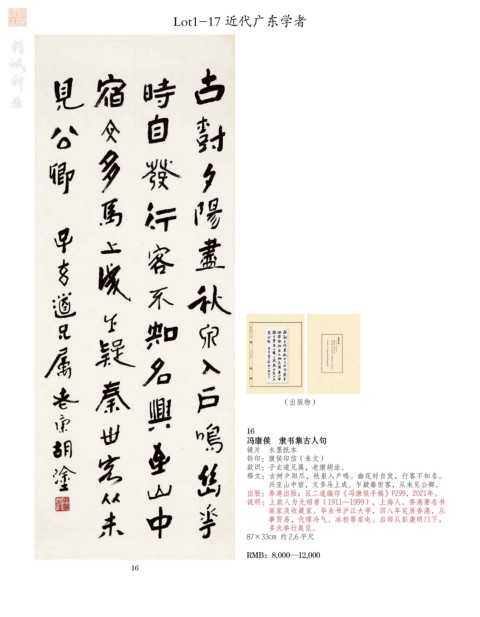 Lot1-17 近代广东学者
精诚所至
古樹夕陽盡秋泉入戶鳴幽花
時自發行客不知名興至山中
宿文多馬上成乍疑秦世客从未
見公卿 子玄道兄属老康胡塗
16
（出版物）
16
冯康侯 隶书集古人句
镜片 水墨纸本
钤印：康侯印信（朱文）
款识：子玄道兄属，老康胡涂。
释文：古树夕阳尽，秋泉入户鸣。幽花时自发，行客不知名。
兴至山中宿，文多马上成。乍疑秦世客，从未见公卿。
出版：香港出版：区二连编印《冯康侯手稿》P299，2021年。
说明：上款人为尤绍曾（1911—1999），上海人，香港著名书
画家及收藏家。毕业书沪江大学，四八年定居香港，从
事贸易，代理冷气、冰柜等家电。后师从彭袭明门下，
多次举行展览。
87×33cm 约2.6平尺
RMB: 8,000—12,000